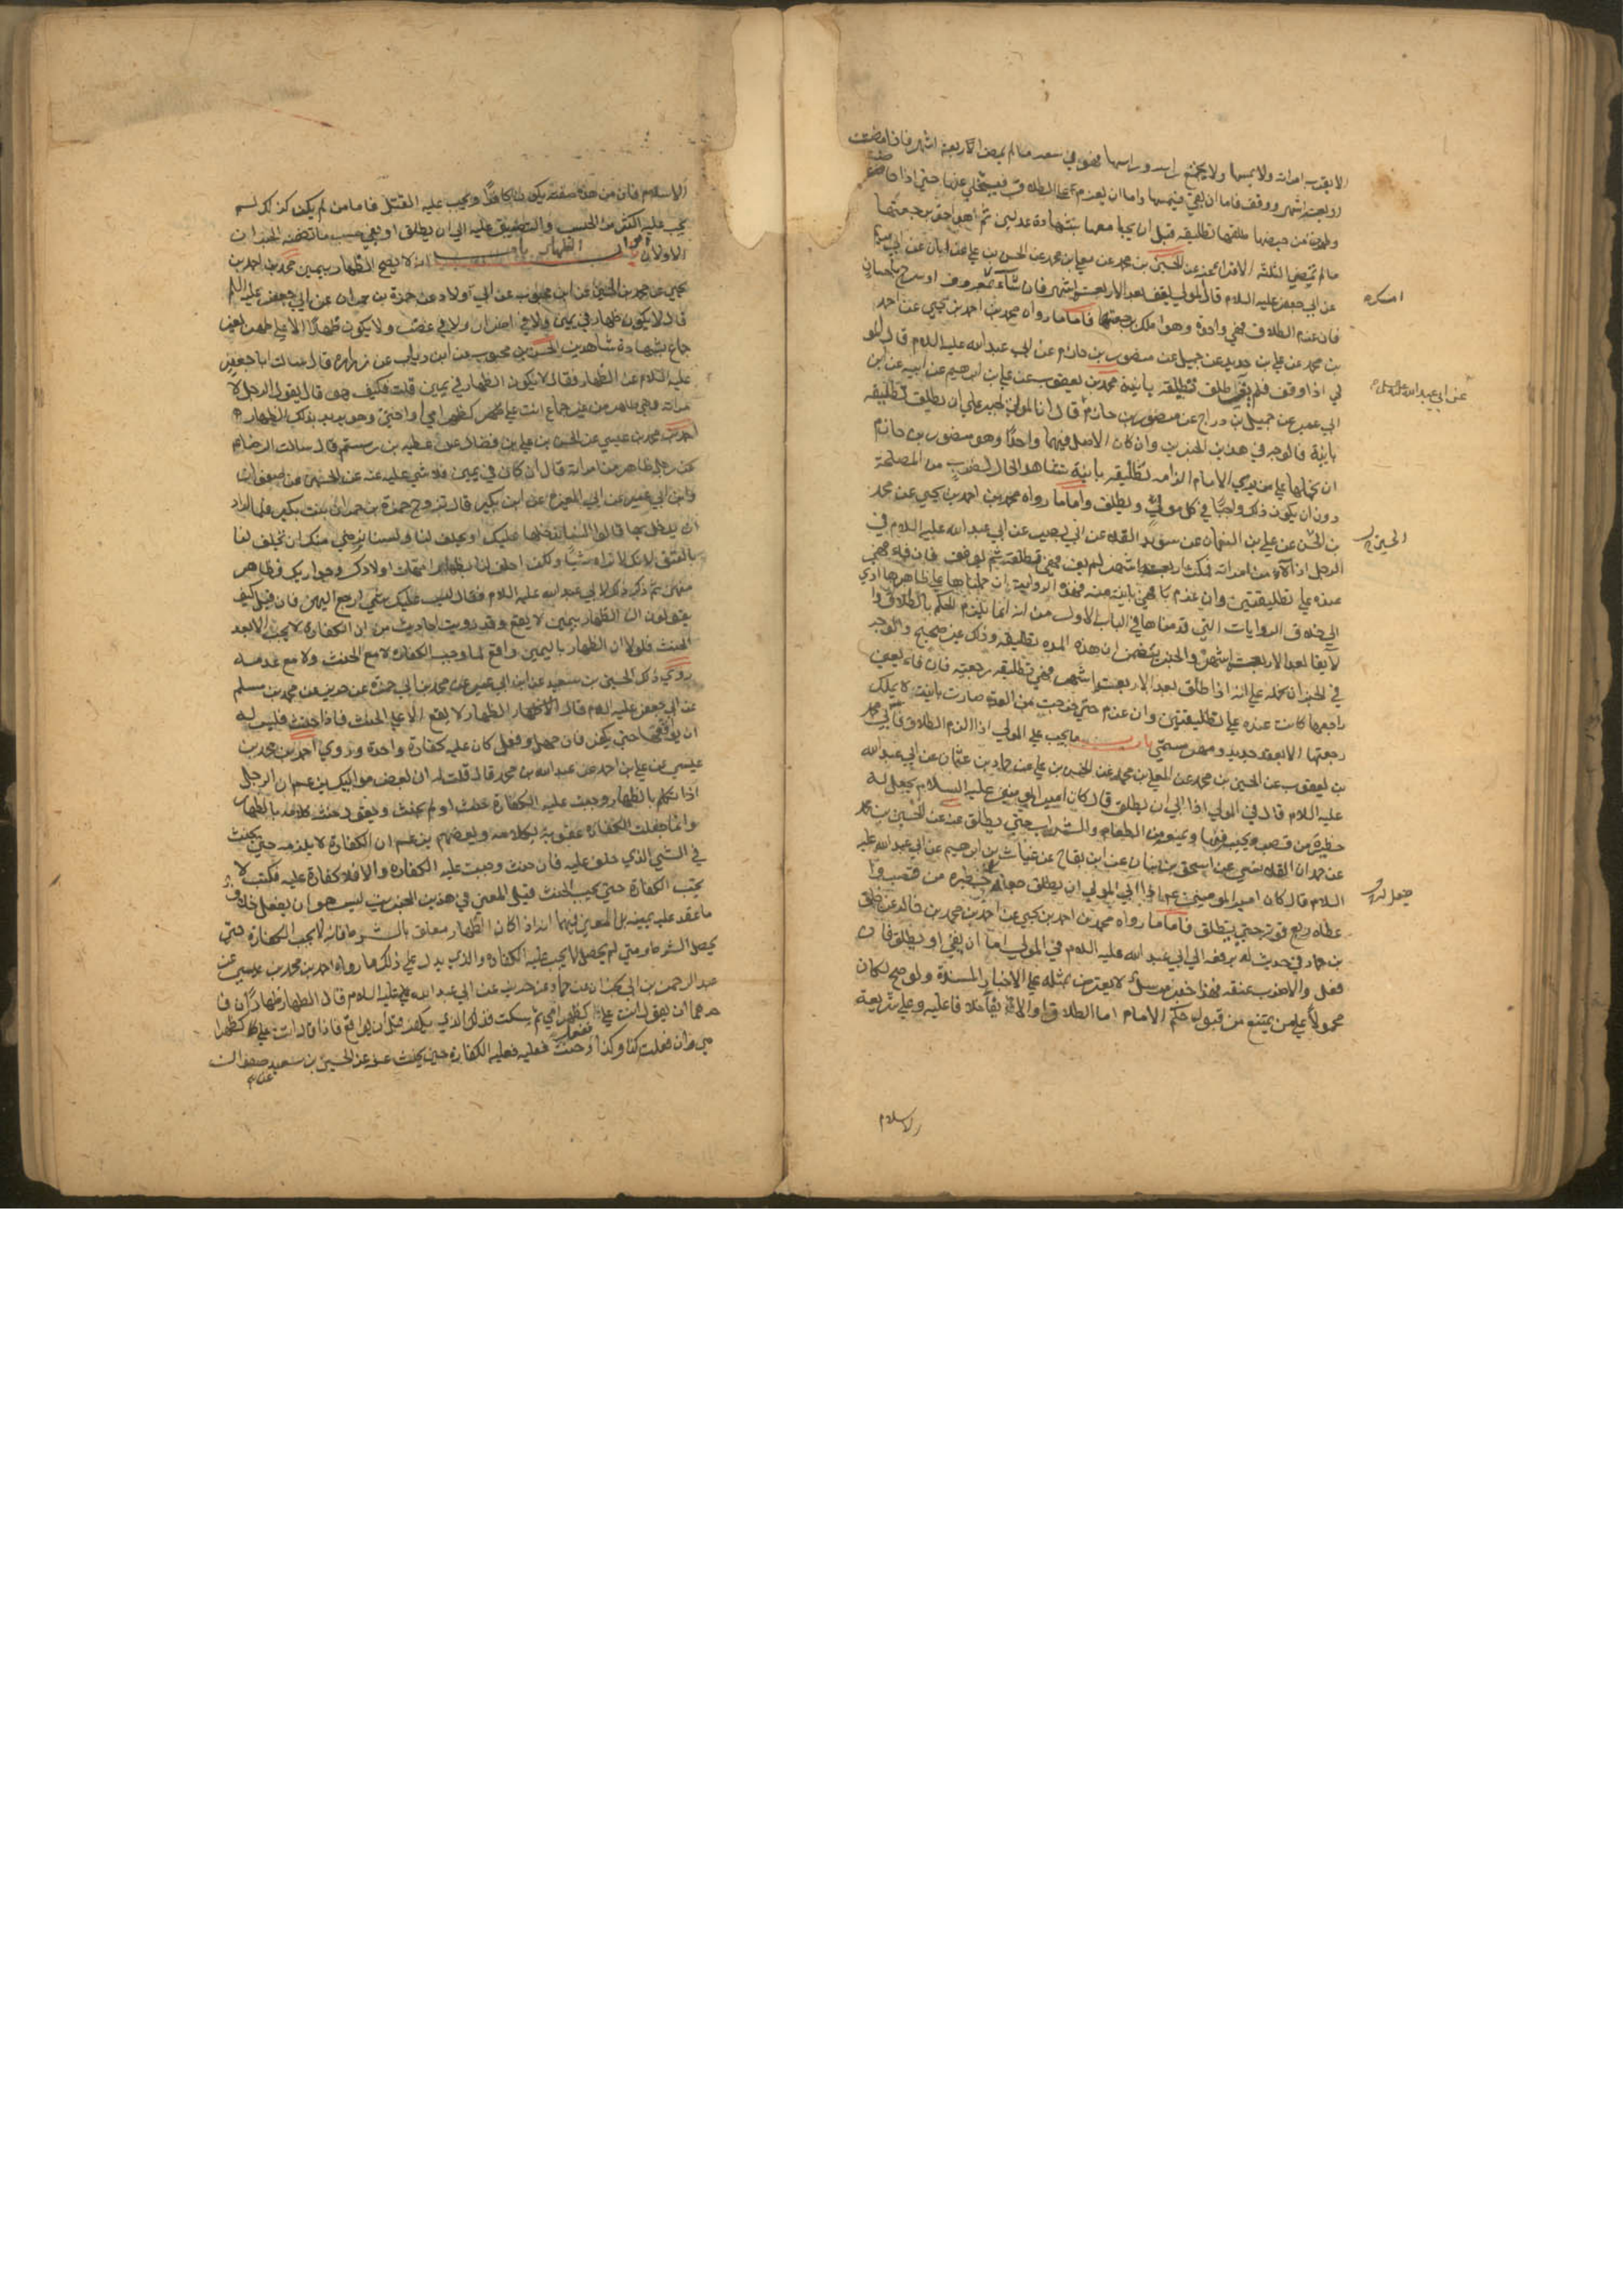 الا يقرب امراته ولا يمسها ولا يجتمع راسه وراسها فهو في سعه ما لم يمض الاربعة اشهر فاذا مضت
اربعة اشهر ووقف فاما ان يفئ فيمسها واما ان يعزم على الطلاق فيخلي عنها حتى اذا حاضت
وطهرت من حيضها طلقها تطليقة قبل ان يجامعها بشهادة عدلين ثم هو احق برجعتها
ما لم تمضي الثلثة الاقراء عنه عن الحسين بن محمد عن معلى بن محمد عن الحسن بن علي عن ابان عن ابي مريم
عن ابي جعفر عليه السلام قال المولي يوقف بعد الاربعة اشهر فان شاء امسك بمعروف او تسريح باحسان
فان عزم الطلاق فهي واحدة وهو املك برجعتها فاما ما رواه محمد بن احمد بن يحيى عن احمد
بن محمد عن علي بن حديد عن جميل عن منصور بن حازم عن ابي عبد الله عليه السلام قال المو
لي اذا وقف فلم يفئ طلق تطليقة باينة محمد بن يعقوب عن علي بن ابرهيم عن ابيه عن ابن
ابي عمير عن جميل بن دراج عن منصور بن حازم قال ان المولي يجبر على ان يطلق تطليقة
باينة فالوجه في هذين الخبرين وان كان الاصل فيهما واحدا وهو منصور بن حازم
ان نحملها على من يري الامام الزامه تطليقة باينة يشاهد الحال لضرب من المصلحة
دون ان يكون ذلك واجبا في كل مولي ويطلق واما ما رواه محمد بن احمد بن يحيى عن محمد
بن الحسن عن علي بن النعمان عن سويد القلاء عن ابي بصير عن ابي عبد الله عليه السلام في
الرجل اذا آلى من امراته فمكث اربعة اشهر لم يف فهي تطليقة ثم يوقف فان فاء فهي
عنده على تطليقتين وان عزم فهي باينة منه فهذه الرواية ان حملناها على ظاهرها ادي
الى خلاف الروايات التي قدمناها في الباب الاول من انه انما يلزم الحكم بالطلاق وا
لا يفا بعد الاربعة اشهر والخبر يتضمن ان هذه المده تطليقة وذلك غير صحيح والوجه
في الخبر ان نحمله على انه اذا طلق بعد الاربعة اشهر فهي تطليقة رجعيه فان فاء يعني
راجعها كانت عنده على تطليقتين وان عزم حتى خرجت من العدة صارت باينة لا يملك
رجعتها الا بعقد جديد ومهر مسمى باب ما يجب على المولي اذا الزم الطلاق فابي محمد
بن يعقوب عن الحسين بن محمد عن المعلى بن محمد عن الحسن بن علي عن حماد بن عثمان عن ابي عبد الله
عليه السلام قال في المولي اذا ابي ان يطلق قال كان امير المومنين عليه السلام يجعل له
حظيرة من قصب ويحبسه فيها ويمنعه من الطعام والشراب حتى يطلق عنه عن الحسين بن محمد
عن حمدان القلانسي عن اسحق بن بنان عن ابن بقاح عن غياث بن ابرهيم عن ابي عبد الله عليه
السلام قال كان امير المومنين ع اذا ابي المولي ان يطلق جعل له حظيره من قصب وا
عطاه ربع قوته حتى يطلق فاما ما رواه محمد بن احمد بن يحيى عن احمد بن محمد بن خالد عن خلف
بن حماد في حديث له يرفعه الى ابي عبد الله عليه السلام في المولي اما ان يفئ او يطلق فان
فعل والا ضرب عنقه فهذا خبر مرسل لا يعترض بمثله على الاخبار المسندة ولو صح لكان
محمولا على من يمتنع من قبول حكم الامام اما الطلاق او الايفاء خلافا عليه وعلى شريعة
الاسلام
امسك
عن ابي عبد الله عليه السلام
الحسين
جعل له
الاسلام فان من هذه صفته يكون كافرا ويجب عليه القتل فاما من لم يكن كذلك لم
يجب عليه اكثر من الحبس والتضييق عليه الى ان يطلق او يفئ حسب ما تضمنه الخبران
الاولان ابواب الظهار باب انه لا يصح الظهار بيمين محمد بن احمد بن
يحيى عن محمد بن الحسين عن ابن محبوب عن ابي ولاد عن حمزة بن حمران عن ابي جعفر عليه السلام
قال لا يكون ظهار في يمين ولا في اضرار ولا في غضب ولا يكون ظهارا الا على طهر بغير
جماع بشهادة شاهدين الحسن بن محبوب عن ابن رئاب عن زراره قال سالت ابا جعفر
عليه السلام عن الظهار فقال لا يكون الظهار في يمين قلت فكيف هو قال يقول الرجل لا
مراته وهي طاهر من غير جماع انت علي كظهر امي او اختي وهو يريد بذلك الظهار
احمد بن محمد بن عيسى عن الحسن بن علي بن فضال عن عطية بن رستم قال سالت الرضا ع
عن رجل ظاهر من امراته قال ان كان في يمين فلا شي عليه عنه عن الحسين عن صفوان
وابن ابي عمير عن ابي المغرا عن ابن بكير قال تزوج حمزة بن حمران بنت بكير فلما اراد
ان يدخل بها قالوا لسنا ندخلها عليك او تحلف لنا ولسنا نرضي منك ان تحلف لنا
بالعتق لانك لا تراه شيئا ولكن احلف لنا بظهار امهات اولادك وجواريك فظاهر
منهن ثم ذكر ذلك لابي عبد الله عليه السلام فقال ليس عليك شي ارجع اليهن فان قيل كيف
يقولون ان الظهار بيمين لا يقع وقد رويت احاديث من ان الكفاره لا يجب الا بعد
الحنث فلولا ان الظهار باليمين واقع لما وجب الكفاره لا مع الحنث ولا مع عدمه
روى ذلك الحسين بن سعيد عن ابن ابي عمير عن محمد بن ابي حمزة عن حريز عن محمد بن مسلم
عن ابي جعفر عليه السلام قال الظهار لا يقع الا على الحنث فاذا حنث فليس له
ان يواقعها حتى يكفر فان جهل وفعل كان عليه كفارة واحدة وروى احمد بن محمد بن
عيسى عن علي بن احمد عن عبد الله بن محمد قال قلت له ان بعض مواليك يزعم ان الرجل
اذا تكلم بالظهار وجبت عليه الكفارة حنث او لم يحنث ويقول حنثه كلامه بالظهار
وانما جعلت الكفارة عقوبة لكلامه وبعضهم يزعم ان الكفارة لا يلزمه حتى يحنث
في الشي الذي حلف عليه فان حنث وجبت عليه الكفاره والا فلا كفارة عليه فكتب لا
يجب الكفارة حتى يجب الحنث قيل المعنى في هذين الخبرين ليس هو ان يفعل خلاف
ما عقد عليه يمينه بل المعنى فيهما انه اذا كان الظهار معلق بالشرط فانه لا يجب الكفارة حتى
يحصل الشرط ومتى لم يحصل لا يجب عليه الكفاره والذي يدل على ذلك ما رواه احمد بن محمد بن عيسى عن
عبد الرحمن بن ابي نجران عن حماد عن حريز عن ابي عبد الله عليه السلام قال الظهار ظهاران فا
حدهما ان يقول انت علي كظهر امي ثم يسكت فذلك الذي يكفر قبل ان يواقع فاذا قال انت علي كظهر ا
مي وان فعلت كذا وكذا ففعل وحنث فعليه الكفارة حين يحنث عنه عن الحسين بن سعيد صفوان